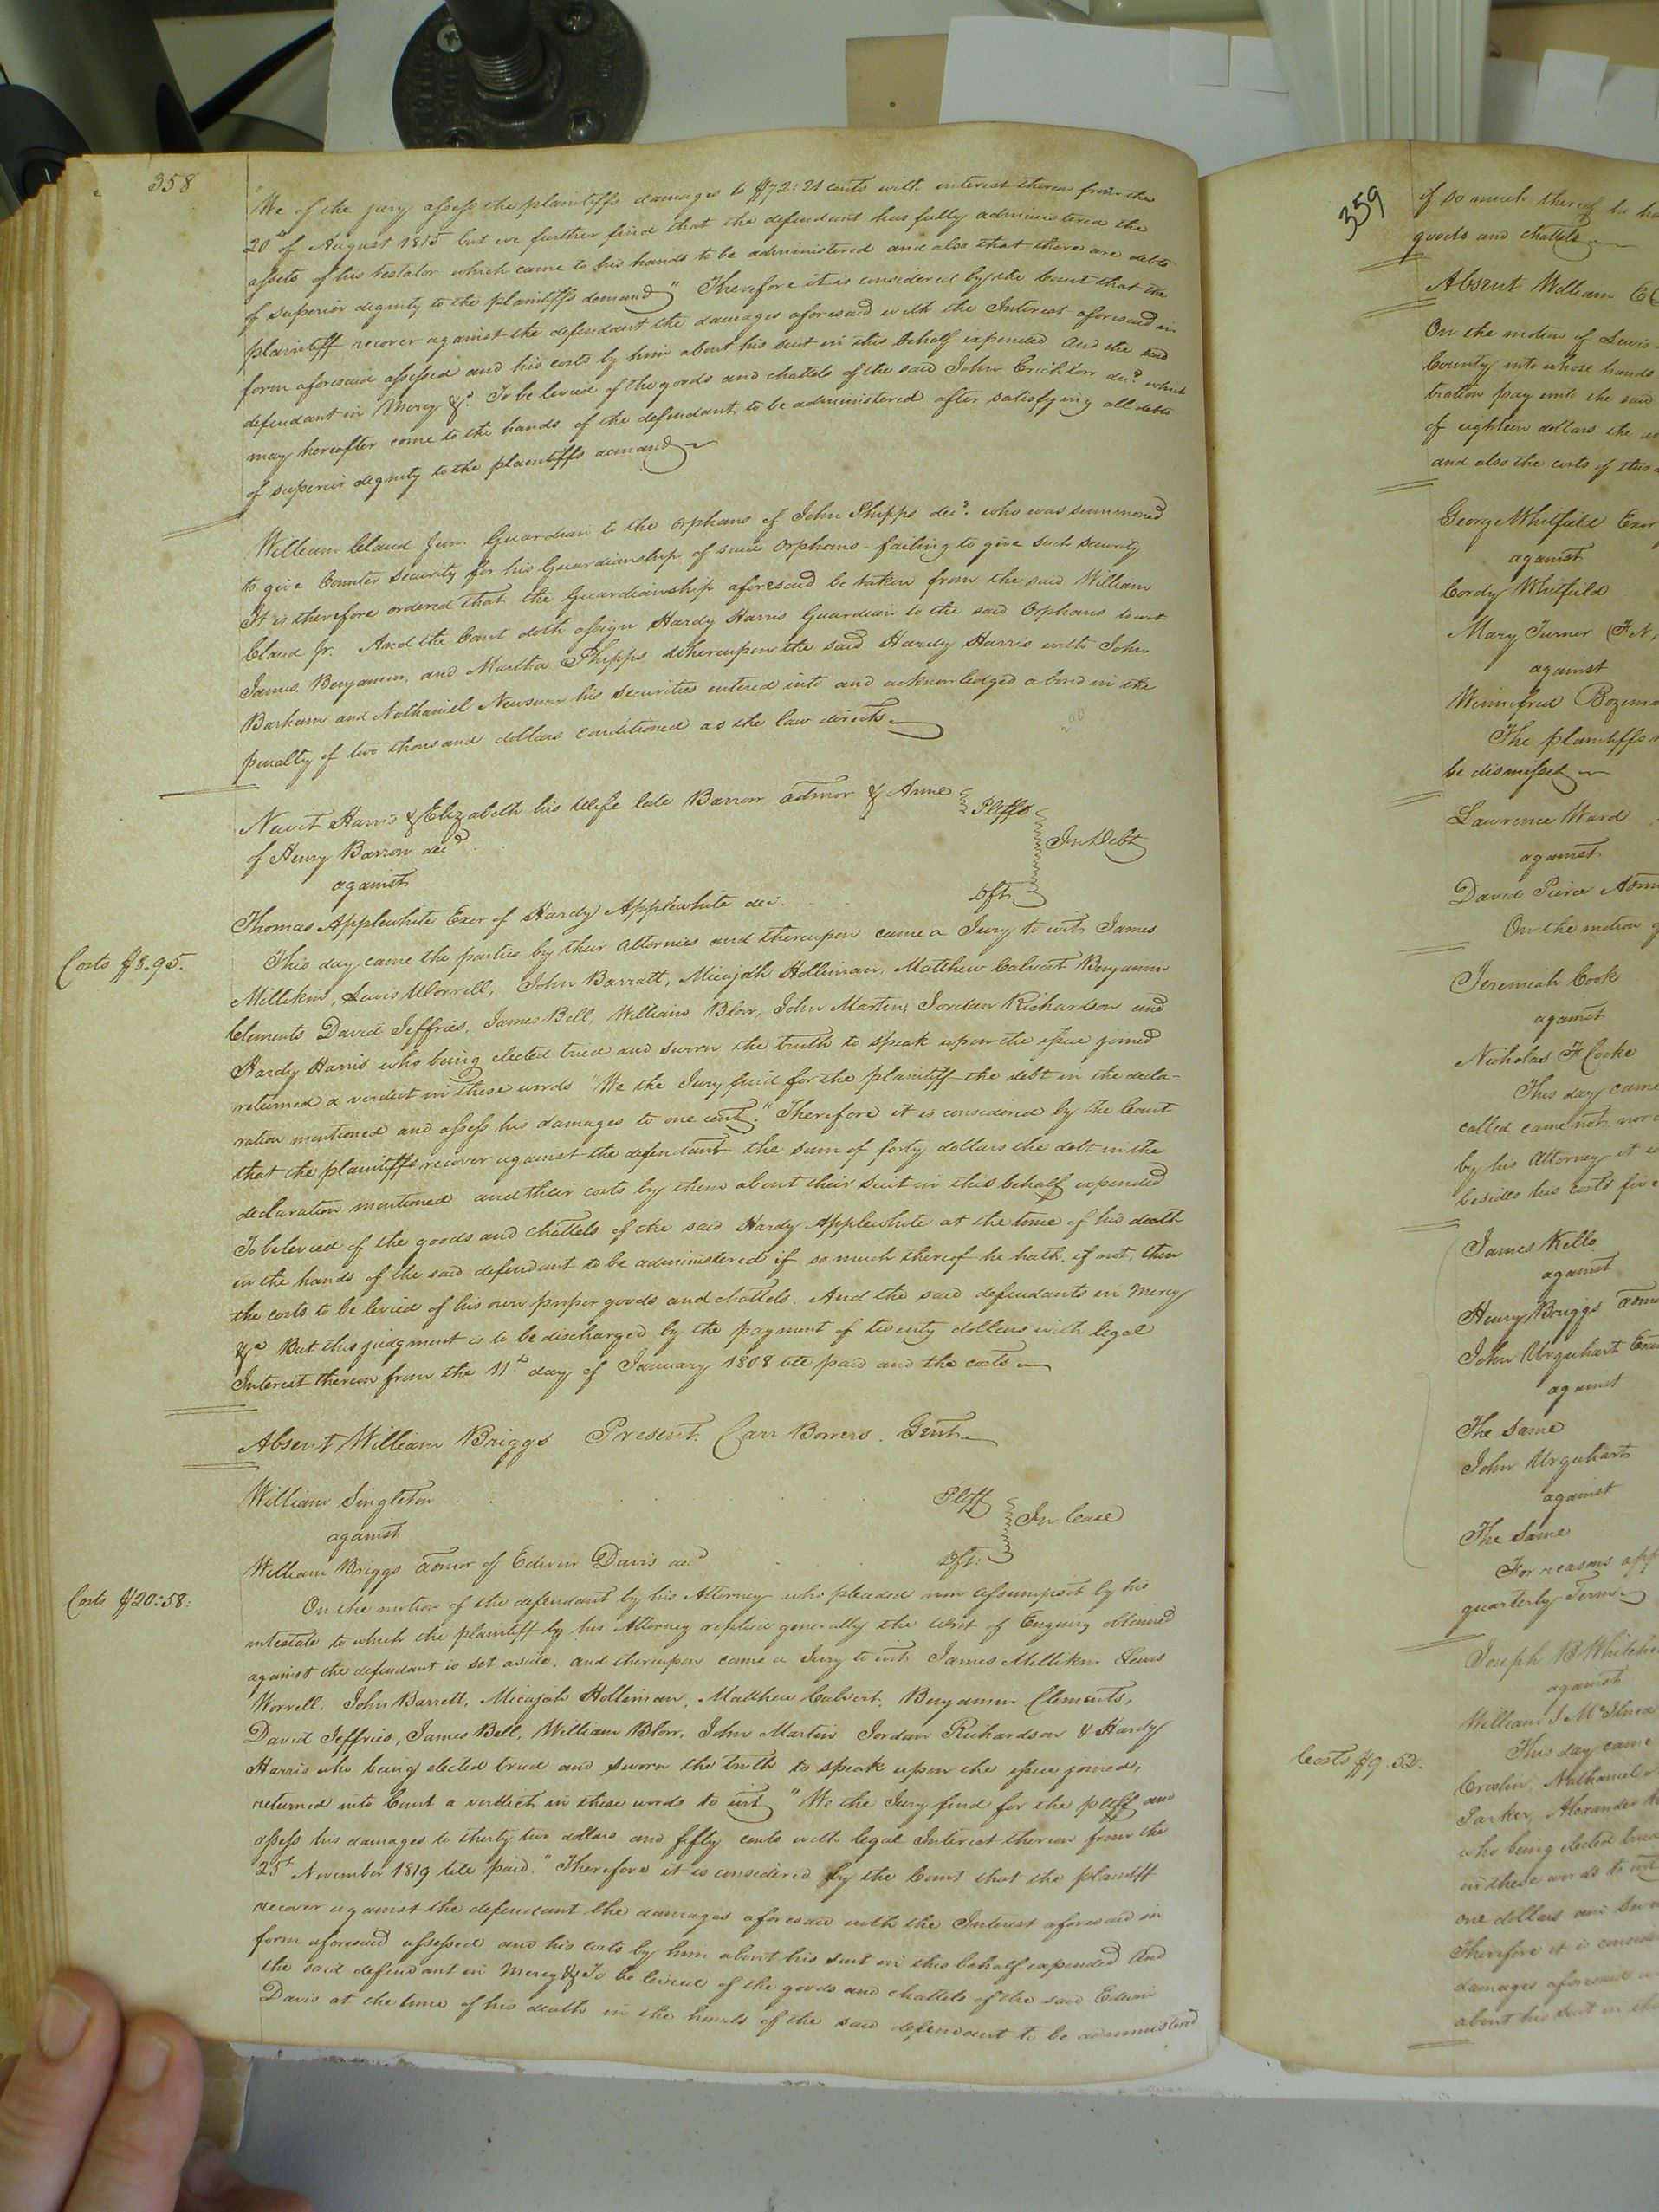 358
"We of the jury assess the plaintiffs damages to $72:21 cents with interest thereon from the
20th of August 1815 but we further find that the defendant has fully administered the
assets of his testator which came to his hands to be administered and also that there are debts
of superior dignity to the plaintiffs demand" Therefore it is considered by the Court that the
plaintiff recover against the defendant the damages aforesaid with the Interest aforesaid in
form aforesaid assessed and his costs by him about his suit in this behalf expended And the said
defendant in Mercy &c. To be levied of the goods and chattels of the said John Crichlow decd. which
may hereafter come to the hands of the defendant, to be administered after satisfying all debts
of superior dignity to the plaintiffs demand
William Claud Jun. Guardian to the orphans of John Phipps decd. who was summoned
to give Counter Security for his Guardianship of said Orphans failing to give such security
It is therefore ordered that the Guardianship aforesaid be taken from the said William
Claud Jr. And the Court doth assign Hardy Harris Guardian to the said Orphans to wit
James, Benjamin, and Martha Phipps Whereupon the said Hardy Harris with John
Barham and Nathaniel Newsum his securities entered into and acknowledged a bond in the
penalty of two thousand dollars conditioned as the law directs
Newit Harris & Elizabeth his Wife late Barron admor & Anne
of Henry Barron decd. Pltffs
against In Debt
Thomas Applewhite Exor of Hardy Applewhite dec. Dft.
Costs $8.95.
This day came the parties by their Attornies and thereupon came a Jury to wit, James
Millikin, Lewis Worrell, John Barratt, Micajah Holliman, Matthew Calvert Benjamin
Clements David Jeffries, James Bell, William Blow, John Martin, Jordan Richardson and
Hardy Harris who being elected tried and sworn the truth to speak upon the issue joined
returned a verdict in these words "We the Jury find for the plaintiff the debt in the decla=
ration mentioned and assess his damages to one cent." Therefore it is considered by the Court
that the plaintiffs recover against the defendant the sum of forty dollars the debt in the
declaration mentioned and their costs by them about their Suit in this behalf expended
To be levied of the goods and chattels of the said Hardy Applewhite at the time of his death
in the hands of the said defendant to be administered if so much thereof he hath, if not, then
the costs to be levied of his own proper goods and chattels. And the said defendants in Mercy
&c But this judgment is to be discharged by the payment of twenty dollars with legal
Interest thereon from the 11th day of January 1808 till paid and the costs
Absent William Briggs Present. Carr Bowers. Gent.
William Singleton Pltff
against In Case
William Briggs admor of Edwin Davis decd Dft:
Costs $20:58:
On the motion of the defendant by his Attorney who pleaded non assumpsit by his
intestate to which the plaintiff by his Attorney replied generally the Writ of Enquiry obtained
against the defendant is set aside. and thereupon came a Jury to wit, James Millikin Lewis
Worrell. John Barrett, Micajah Holliman, Matthew Calvert, Benjamin Clements,
David Jeffries, James Bell, William Blow, John Martin Jordan Richardson & Hardy
Harris who being elected tried and sworn the truth to speak upon the issue joined,
returned into Court a verdict in these words to wit "We the Jury find for the pltff and
assess his damages to thirty two dollars and fifty cents with legal Interest thereon from the
25t November 1819 till paid." Therefore it is considered by the Court that the plaintiff
recover against the defendant the damages aforesaid with the Interest aforesaid in
form aforesaid assessed and his costs by him about his suit in this behalf expended And
the said defendant in Mercy & To be levied of the goods and chattels of the said Edwin
Davis at the time of his death in the hands of the said defendant to be administered
359
if so much thereof he
goods and chattels
Absent William
On the motion of Lewis
County into whose hands
tration pay unto the said
of eighteen dollars the
and also the costs of this
George Whitfield Exor
against
Cordy Whitfield
Mary Turner
against
Winnifred
The plaintiffs
be dismissed
Lawrence Ward
against
David Pierce
On the motion
Jeremiah Cook
against
Nicholas F Cocke
This day came
called came not, nor
by his Attorney it
besides his costs five
James Kello
against
Henry Briggs
John Urquhart
against
The Same
John Urquhart
against
The Same
For reasons
quarterly Term
Joseph B
against
William J
Costs $9.52.
This day came
Nathaniel
Parker, Alexander
who being elected
in these words to wit
one dollars and
Therefore it is
damages aforesaid
about his suit in